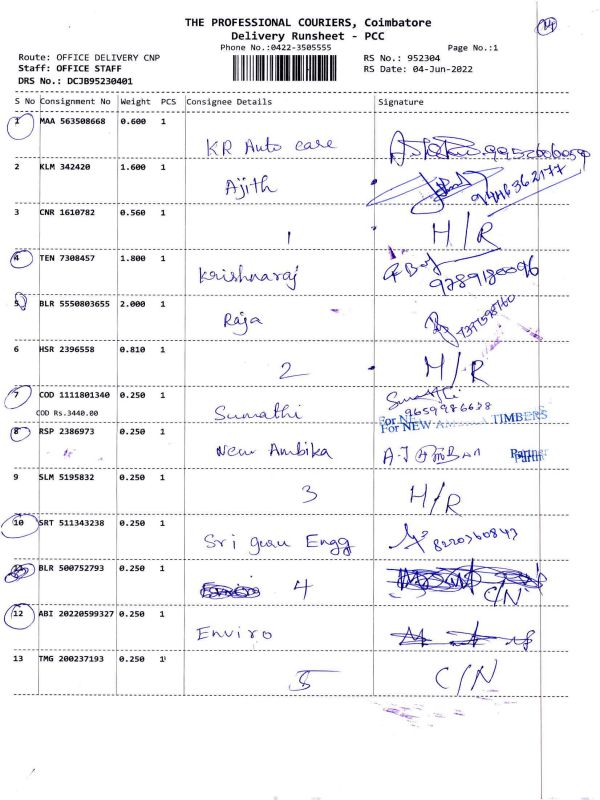 THE PROFESSIONAL COURIERS, Coimbatore
14
Delivery Runsheet - PCC
Phone No.:0422-3505555
Page No.:1
Route: OFFICE DELIVERY CNP
RS No.: 952304
Staff: OFFICE STAFF
RS Date: 04-Jun-2022
DRS No.: DCJB95230401
S No Consignment No Weight PCS Consignee Details Signature
1 MAA 563508668 0.600 1
KR Auto care
2 KLM 342420 1.600 1
Ajith 9446362177
3 CNR 1610782 0.560 1
1 H/R
4 TEN 7308457 1.800 1
Krishnaraj 9789180096
5 BLR 5550803655 2.000 1
Raja
6 HSR 2396558 0.810 1
2 H/R
7 COD 1111801340 0.250 1
COD Rs.3440.00
Sumathi Sumathi 9659986638
8 RSP 2386973 0.250 1
For NEW TIMBERS
New Ambika A.J
Partner
9 SLM 5195832 0.250 1
3 H/R
10 SRT 511343238 0.250 1
Sri guru Engg 8220360843
11 BLR 500752793 0.250 1
4 C/N
12 ABI 20220599327 0.250 1
Enviro
13 TMG 200237193 0.250 1
5 C/N